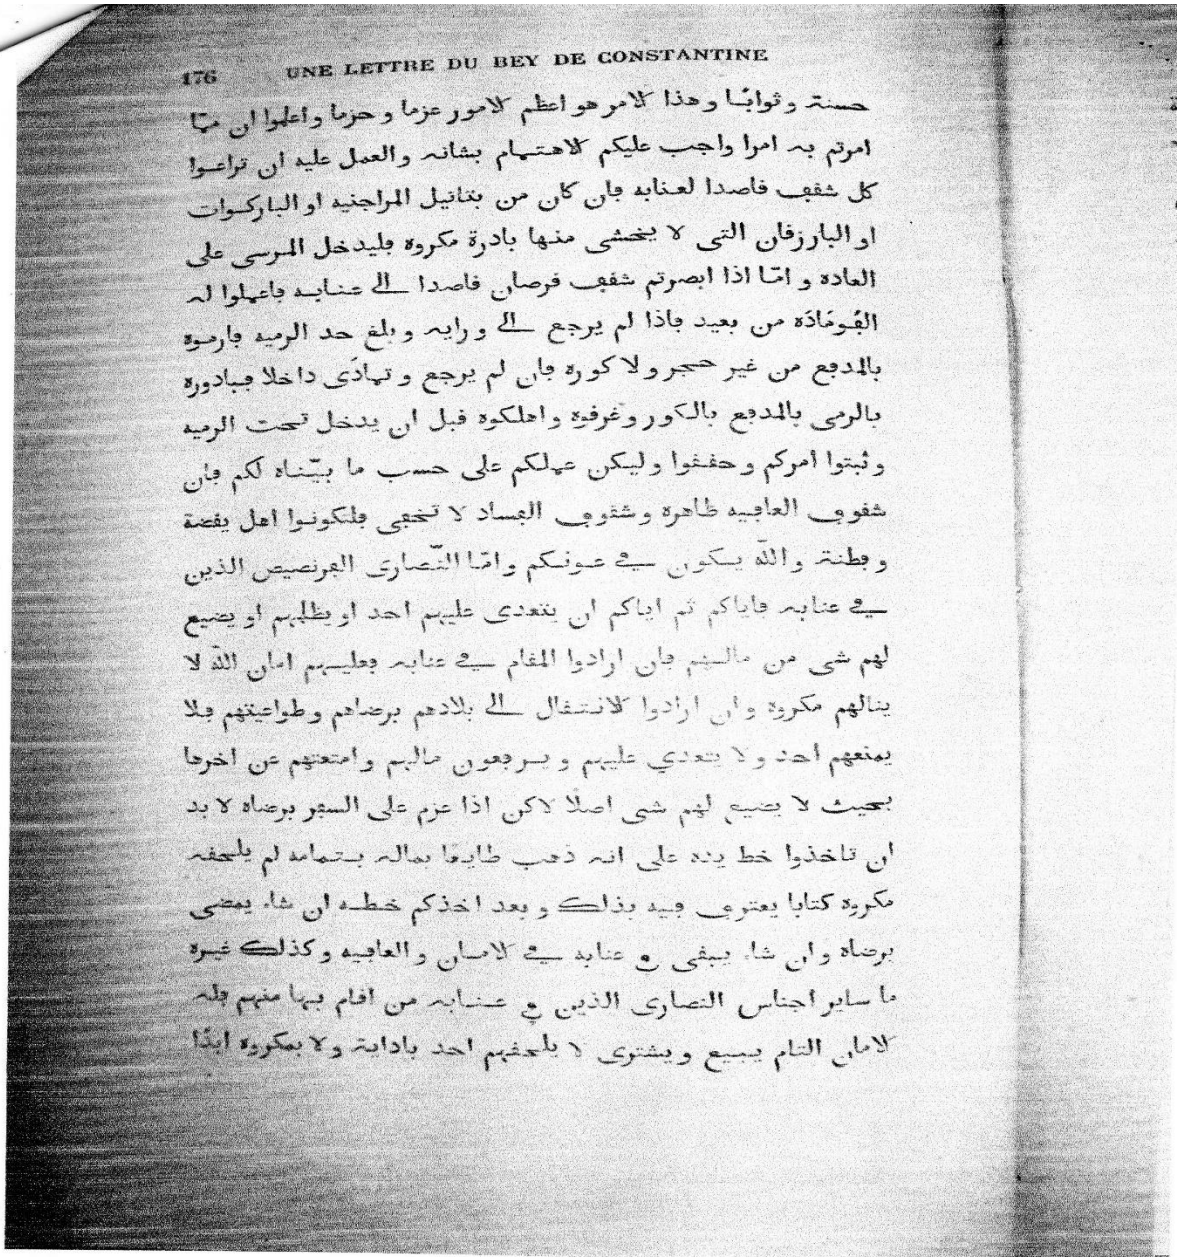 176 UNE LETTRE DU BEY DE CONSTANTINE
حسنة وثوابًا وهذا الامر هو اعظم الامور عزما وحزما واعلموا ان ممّا
امرتم به امرا واجب عليكم الاهتمام بشانه والعمل عليه ان تراعوا
كل شقف قاصدا لعنابه فان كان من بتانيل المراجنيه او الباركوات
او البارزقان التى لا يخشى منها بادرة مكروه فليدخل المرسى على
العاده و امّا اذا ابصرتم شقف قرصان قاصدا الى عنابه فاعملوا له
القُومَادَه من بعيد فاذا لم يرجع الى ورايه وبلغ حد الرميه فارموه
بالمدفع من غير حجر ولا كوره فان لم يرجع وتمادَى داخلا فبادوره
بالرمى بالمدفع بالكور وغرقوه واهلكوه قبل ان يدخل تحت الرميه
وثبتوا امركم وحققوا وليكن عملكم على حسب ما بيّناه لكم فان
شقوف العافيه ظاهرة وشقوف الفساد لا تخفى فلكونوا اهل يقضة
وفطنة والله يكون فى عونكم وامّا النّصارى الفرنصيص الذين
فى عنابه فاياكم ثم اياكم ان يتعدى عليهم احد او يظلمهم او يضيع
لهم شى من مالهم فان ارادوا المقام فى عنابه فعليهم امان الله لا
ينالهم مكروه وان ارادوا الانتقال الى بلادهم برضاهم وطواعيتهم فلا
يمنعهم احد ولا يتعدي عليهم ويرفعون مالهم وامتعتهم عن اخرها
بحيث لا يضيع لهم شى اصلًا لاكن اذا عزم على السفر برضاه لا بد
ان تاخذوا خط يده على انه ذهب طايعًا بماله بتمامه لم يلحقه
مكروه كتابا يعترف فيه بذلك وبعد اخذكم خطه ان شاء يمضى
برضاه وان شاء يبقى فى عنابه فى الامان والعافيه وكذلك غيره
ما ساير اجناس النصارى الذين فى عنابه من اقام بها منهم فله
الامان التام يبيع ويشترى لا يلحقهم احد باداية ولا بمكروه ابدًا